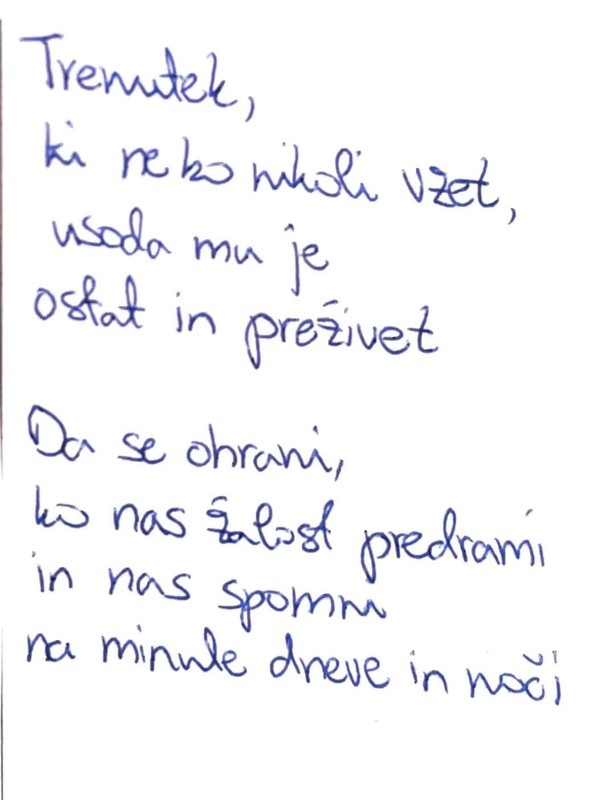 Trenutek,
ki ne bo nikoli vzet,
usoda mu je
ostat in preživet
Da se ohrani,
ko nas žalost predrami
in nas spomni
na minule dneve in noči